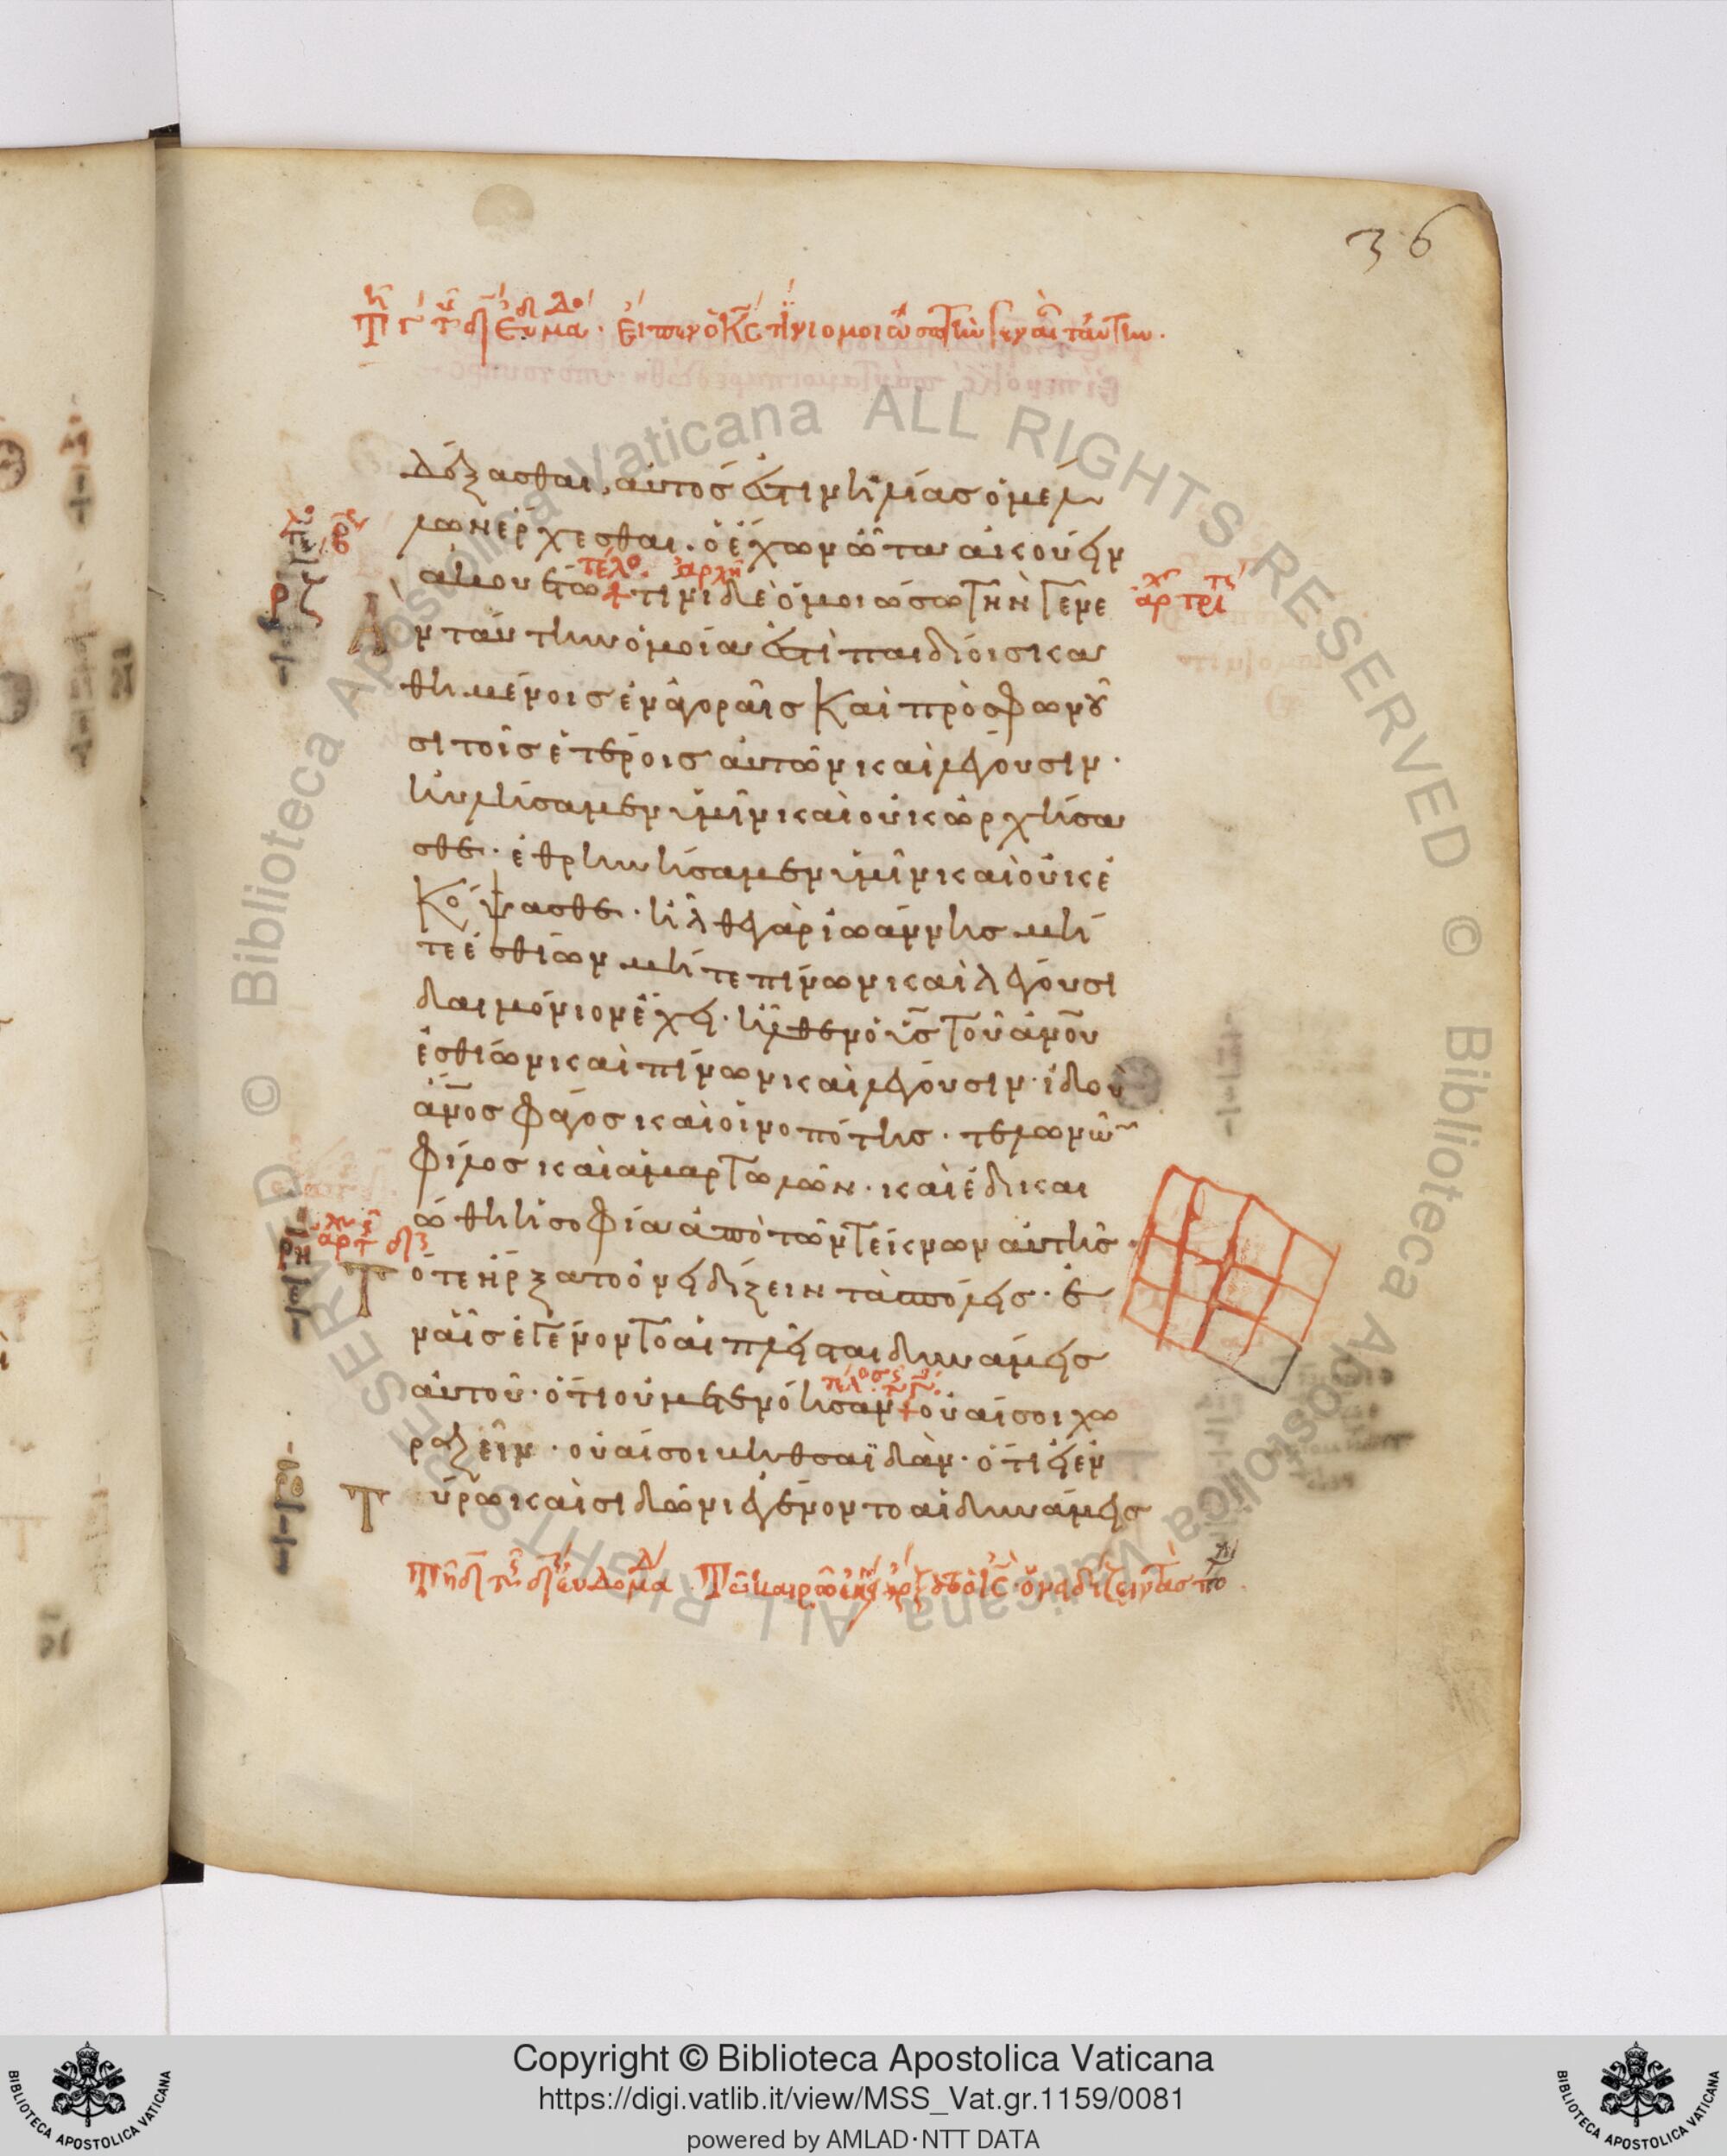 36
Εἶπεν ὁ Κς τίνι ὁμοιώσω τὴν γενεὰν ταύτην.
δέξασθαι, αὐτός ἐστιν ἠλίας ὁ μέλ
λων ἔρχεσθαι. ὁ ἔχων ὦτα ἀκούειν
ἀκουέτω + τίνι δὲ ὁμοιώσω τὴν γενε
τέλο. ἀρχὴ
ρζ
ὰν ταύτην ὁμοία ἐστὶ παιδίοις κα
θημένοις ἐν ἀγοραῖς καὶ προσφωνοῦ
σι τοῖς ἑτέροις αὐτῶν καὶ λέγουσιν.
ηὐλήσαμεν ὑμῖν καὶ οὐκ ὠρχήσα
σθε. ἐθρηνήσαμεν ὑμῖν καὶ οὐκ ἐ
κόψασθε. ἦλθε γὰρ ἰωάννης μή
τε ἐσθίων μήτε πίνων καὶ λέγουσι
δαιμόνιον ἔχει. ἦλθεν ὁ υς τοῦ ανου
ἐσθίων καὶ πίνων καὶ λέγουσιν. ἰδοὺ
ανος φάγος καὶ οἰνοπότης. τελωνῶν
φίλος καὶ ἁμαρτωλῶν. καὶ ἐδικαι
ώθη ἡ σοφία ἀπὸ τῶν τέκνων αὐτῆς.
ρη
Τότε ἤρξατο ὀνειδίζειν τὰς πόλεις. ἐ
ν αἷς ἐγένοντο αἱ πλεῖσται δυνάμεις
αὐτοῦ. ὅτι οὐ μετενόησαν + οὐαί σοι χω
ραζεῖν. οὐαί σοι βηθσαϊδάν. ὅτι εἰ ἐν
Τύρω καὶ σιδῶνι ἐγένοντο αἱ δυνάμεις
Τῶ καιρῶ ἐκείνω ἤρξατο ὁ Ις ὀνειδίζειν τὰς πό
Copyright © Biblioteca Apostolica Vaticana
https://digi.vatlib.it/view/MSS_Vat.gr.1159/0081
powered by AMLAD·NTT DATA
BIBLIOTECA APOSTOLICA VATICANA
BIBLIOTECA APOSTOLICA VATICANA
© Biblioteca Apostolica Vaticana ALL RIGHTS RESERVED © Biblioteca Apostolica Vaticana ALL RIGHTS RESERVED